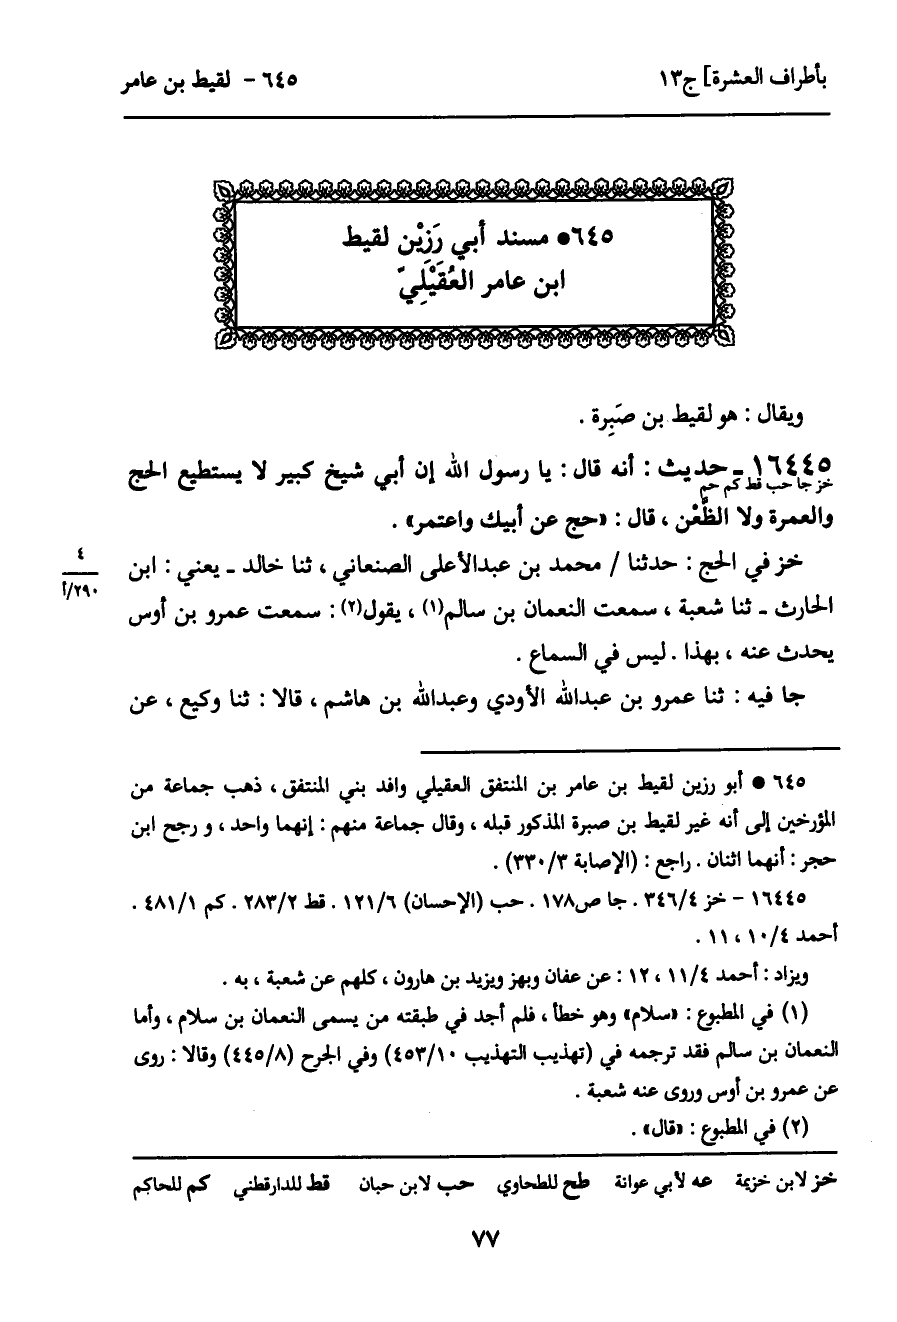 بأطراف العشرة] ج١٣
٦٤٥ - لقيط بن عامر
٦٤٥● مسند أبي رَزِيْن لقيط
ابن عامر العُقَيْلِيّ
ويقال : هو لقيط بن صَبِرة .
١٦٤٤٥ ـ حديث : أنه قال : يا رسول الله إن أبي شيخ كبير لا يستطيع الحج
خز جا حب قط كم حم
والعمرة ولا الظَّعْن ، قال : «حج عن أبيك واعتمر» .
خز في الحج : حدثنا / محمد بن عبدالأعلى الصنعاني ، ثنا خالد ـ يعني : ابن
٤
٢٩٠/أ
الحارث ـ ثنا شعبة ، سمعت النعمان بن سالم(١) ، يقول(٢) : سمعت عمرو بن أوس
يحدث عنه ، بهذا . ليس في السماع .
جا فيه : ثنا عمرو بن عبدالله الأودي وعبدالله بن هاشم ، قالا : ثنا وكيع ، عن
٦٤٥ ● أبو رزين لقيط بن عامر بن المنتفق العقيلي وافد بني المنتفق ، ذهب جماعة من
المؤرخين إلى أنه غير لقيط بن صبرة المذكور قبله ، وقال جماعة منهم : إنهما واحد ، و رجح ابن
حجر : أنهما اثنان . راجع : (الإصابة ٣٣٠/٣) .
١٦٤٤٥ - خز ٣٤٦/٤ . جا ص١٧٨ . حب (الإحسان) ١٢١/٦ . قط ٢٨٣/٢ . كم ٤٨١/١ .
أحمد ١٠/٤ ، ١١ .
ويزاد : أحمد ١١/٤ ، ١٢ : عن عفان وبهز ويزيد بن هارون ، كلهم عن شعبة ، به .
(١) في المطبوع : «سلام» وهو خطأ ، فلم أجد في طبقته من يسمى النعمان بن سلام ، وأما
النعمان بن سالم فقد ترجمه في (تهذيب التهذيب ٤٥٣/١٠) وفي الجرح (٤٤٥/٨) وقالا : روى
عن عمرو بن أوس وروى عنه شعبة .
(٢) في المطبوع : «قال» .
خز لابن خزيمة عه لأبي عوانة طح للطحاوي حب لابن حبان قط للدارقطني كم للحاكم
٧٧